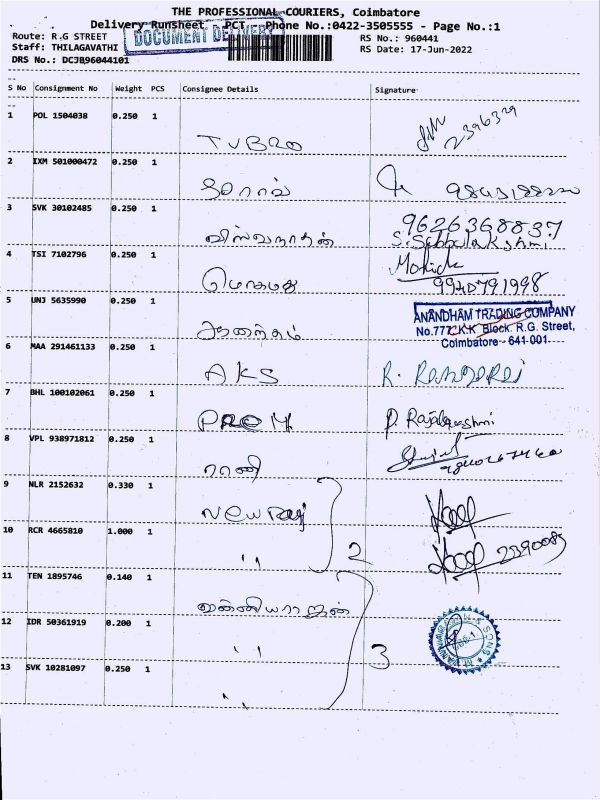 THE PROFESSIONAL COURIERS, Coimbatore
Delivery Runsheet PCT Phone No.:0422-3505555 - Page No.:1
DOCUMENT DELIVERY
Route: R.G STREET RS No.: 960441
Staff: THILAGAVATHI RS Date: 17-Jun-2022
DRS No.: DCJB96044101
S No Consignment No Weight PCS Consignee Details Signature
1 POL 1504038 0.250 1
TVBRO
2 IXM 501000472 0.250 1
3 SVK 30102485 0.250 1 9626368837
விஸ்வநாதன் S. Subbulakshmi
4 TSI 7102796 0.250 1
9940791998
5 UNJ 5635990 0.250 1 ANANDHAM TRADING COMPANY
No.777, K.K Block. R.G. Street,
ஆனந்தம் Coimbatore - 641 001.
6 MAA 291461133 0.250 1
AKS
7 BHL 100102061 0.250 1
PROM P. Rajalakshmi
8 VPL 938971812 0.250 1
ராணி
9 NLR 2152632 0.330 1
New Raj
10 RCR 4665810 1.000 1
" 2
11 TEN 1895746 0.140 1
12 IDR 50361919 0.200 1
" 3
13 SVK 10281097 0.250 1
"